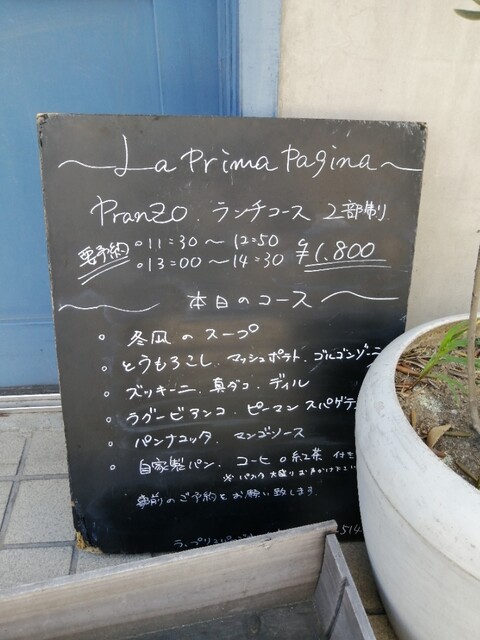 La Prima Pagina
Pranzo. ランチコース 2部制
要予約 11:30 〜 12:50 ¥1,800
13:00 〜 14:30
本日のコース
冬瓜のスープ
とうもろこし. マッシュポテト. ゴルゴンゾーラ
ズッキーニ. 真ダコ. ディル
ラグービアンコ. ピーマン スパゲティ
パンナコッタ. マンゴーソース
自家製パン. コーヒー o 紅茶 付き
※ パスタ大盛り お声がけ下さい
事前のご予約をお願い致します.
514